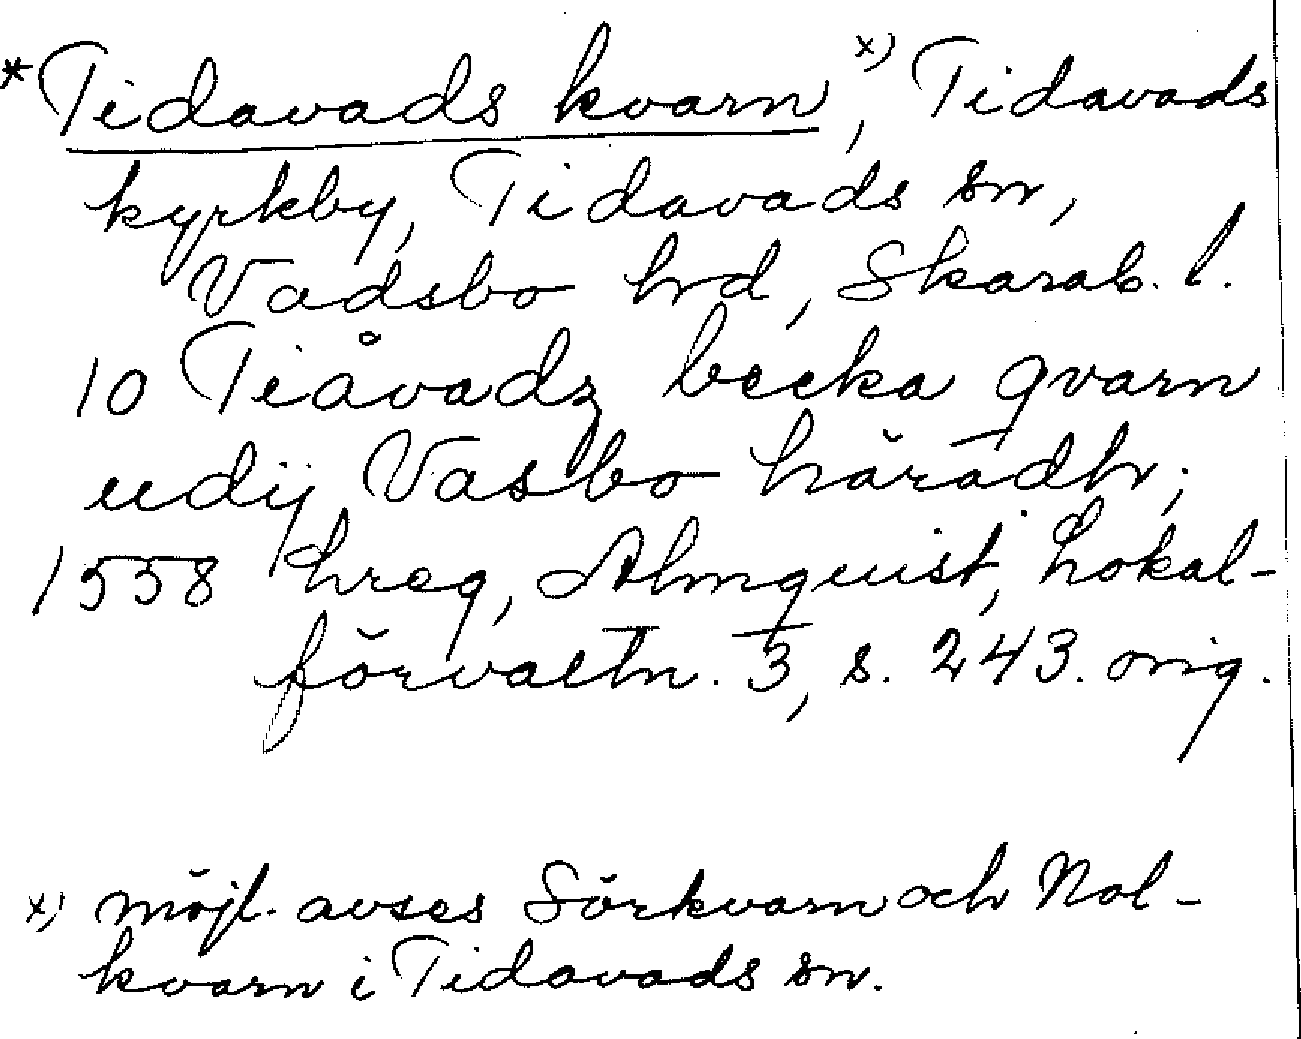 *Tidavads kvarn, x) Tidavads
kyrkby, Tidavads sn,
Vadsbo hrd, Skarab. l.
10 Tiåvadz becka qvarn
udij Vasbo häradh;
1558 hreg, Almquist, Lokal-
förvaltn. 3, s. 243. orig.
x) möjl. avses Sörkvarn och Nol-
kvarn i Tidavads sn.